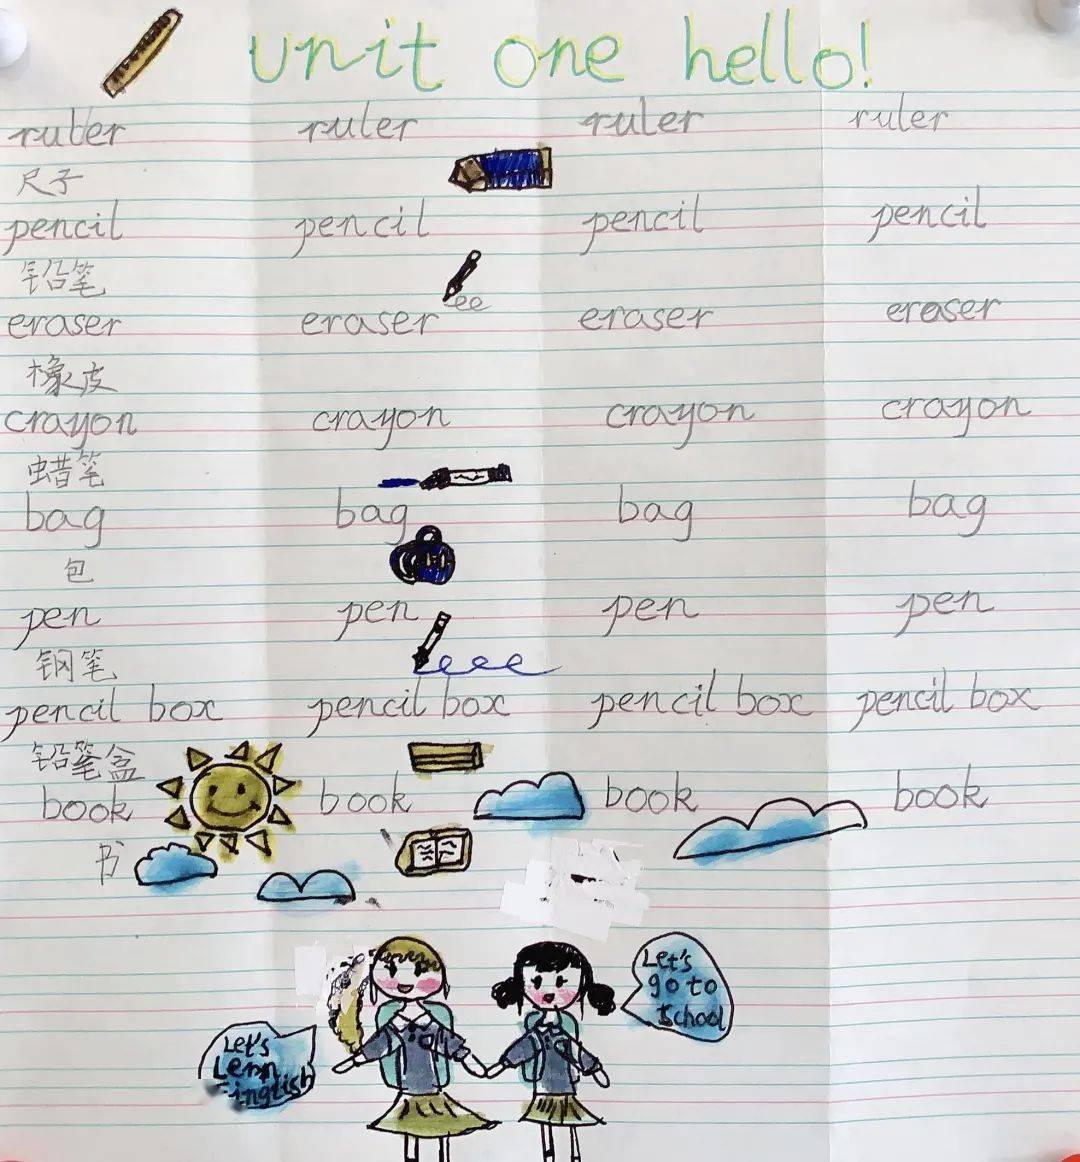 unit one hello!
ruler ruler ruler ruler
尺子
pencil pencil pencil pencil
铅笔
eraser eraser eraser eraser
橡皮
crayon crayon crayon crayon
蜡笔
bag bag bag bag
包
pen pen pen pen
钢笔
pencil box pencil box pencil box pencil box
铅笔盒
book book book book
书
Let's
go to
school
Let's
Lern
Einglish